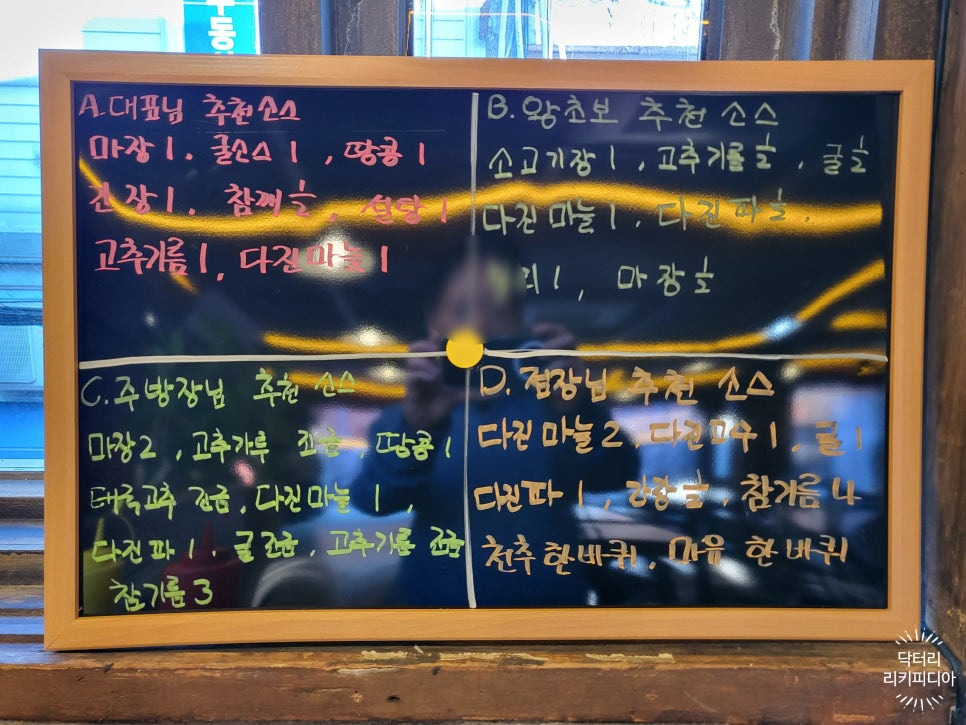 동
A. 대표님 추천소스
마장 1. 굴소스 1, 땅콩 1
간장 1. 참깨 ½, 설탕 1
고추기름 1, 다진마늘 1
B. 왕초보 추천 소스
소고기장 1, 고추기름 ½, 굴 ½
다진마늘 1, 다진파 ½,
1, 마장 ½
C. 주방장님 추천 소스
마장 2, 고추가루 조금, 땅콩 1
태국고추 조금, 다진마늘 1,
다진파 1. 굴 조금, 고추기름 조금
참기름 3
D. 점장님 추천 소스
다진마늘 2, 다진고수 1, 굴 1
다진파 1, 간장 ½, 참기름 4
천추 한바퀴, 마유 한바퀴
닥터리
리키피디아